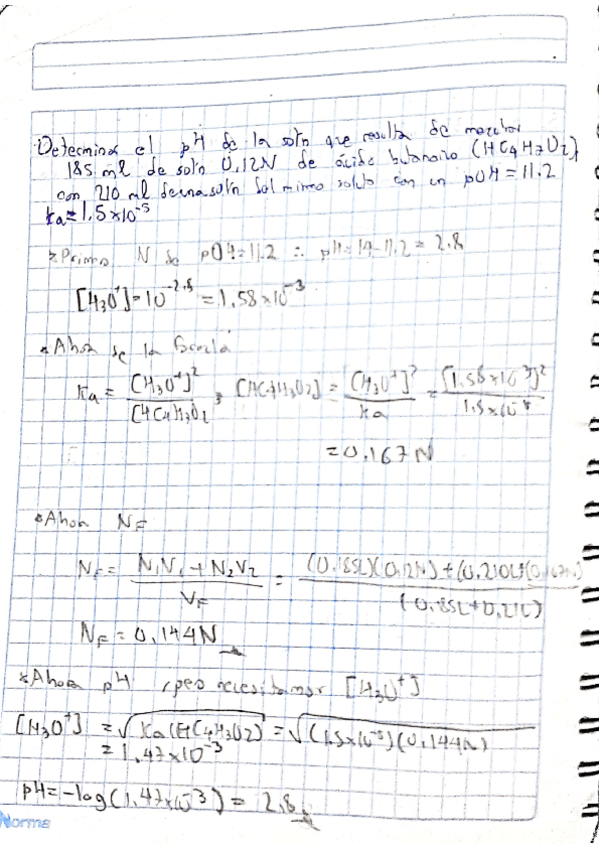 Determinar el pH de la soln que resulta de mezclar
185 ml de soln 0,12N de ácido butanoico (HC4H7O2)
con 210 ml de una soln del mismo soluto con un pOH = 11.2
ka = 1.5x10⁻⁵
Primero N de pOH = 11.2 ∴ pH = 14-11.2 = 2.8
[H3O⁺] = 10⁻²·⁸ = 1.58x10⁻³
*Ahora de la
Ka = [H3O⁺]² / [HC4H3O2] ; [HC4H3O2] = [H3O⁺]² / ka = [1.58x10⁻³]² / 1.5x10⁻⁵
= 0.167N
*Ahora NF
NF = N1V1 + N2V2 / VF = (0.185L)(0.12N) + (0.210L)(0.167N) / (0.185L+0.21L)
NF = 0.144N
*Ahora pH, pero necesitamos [H3O⁺]
[H3O⁺] = √Ka(HC4H3O2) = √(1.5x10⁻⁵)(0.144N)
= 1.47x10⁻³
pH = -log(1.47x10⁻³) = 2.8
Norma